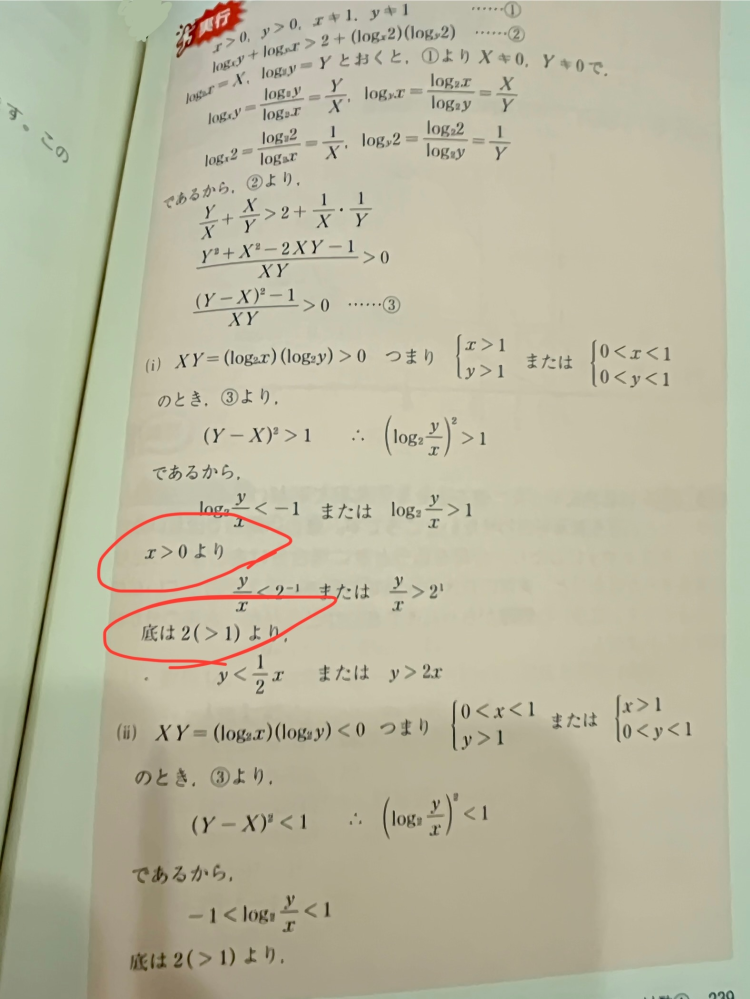 す。この
実行
x>0, y>0, x≠1, y≠1 ……①
logₓy+logᵧx>2+(logₓ2)(logᵧ2) ……②
log₂x=X, log₂y=Y とおくと, ①より X≠0, Y≠0 で,
logₓy=log₂y/log₂x=Y/X, logᵧx=log₂x/log₂y=X/Y
logₓ2=log₂2/log₂x=1/X, logᵧ2=log₂2/log₂y=1/Y
であるから, ②より,
Y/X+X/Y>2+1/X・1/Y
(Y²+X²−2XY−1)/XY>0
((Y−X)²−1)/XY>0 ……③
(i) XY=(log₂x)(log₂y)>0 つまり {x>1 y>1 または {0<x<1 0<y<1
のとき, ③より,
(Y−X)²>1 ∴ (log₂ y/x)²>1
であるから,
log₂ y/x<−1 または log₂ y/x>1
x>0より
y/x<2⁻¹ または y/x>2¹
底は2(>1)より,
y<1/2 x または y>2x
(ii) XY=(log₂x)(log₂y)<0 つまり {0<x<1 y>1 または {x>1 0<y<1
のとき, ③より,
(Y−X)²<1 ∴ (log₂ y/x)²<1
であるから,
−1<log₂ y/x<1
底は2(>1)より,
239